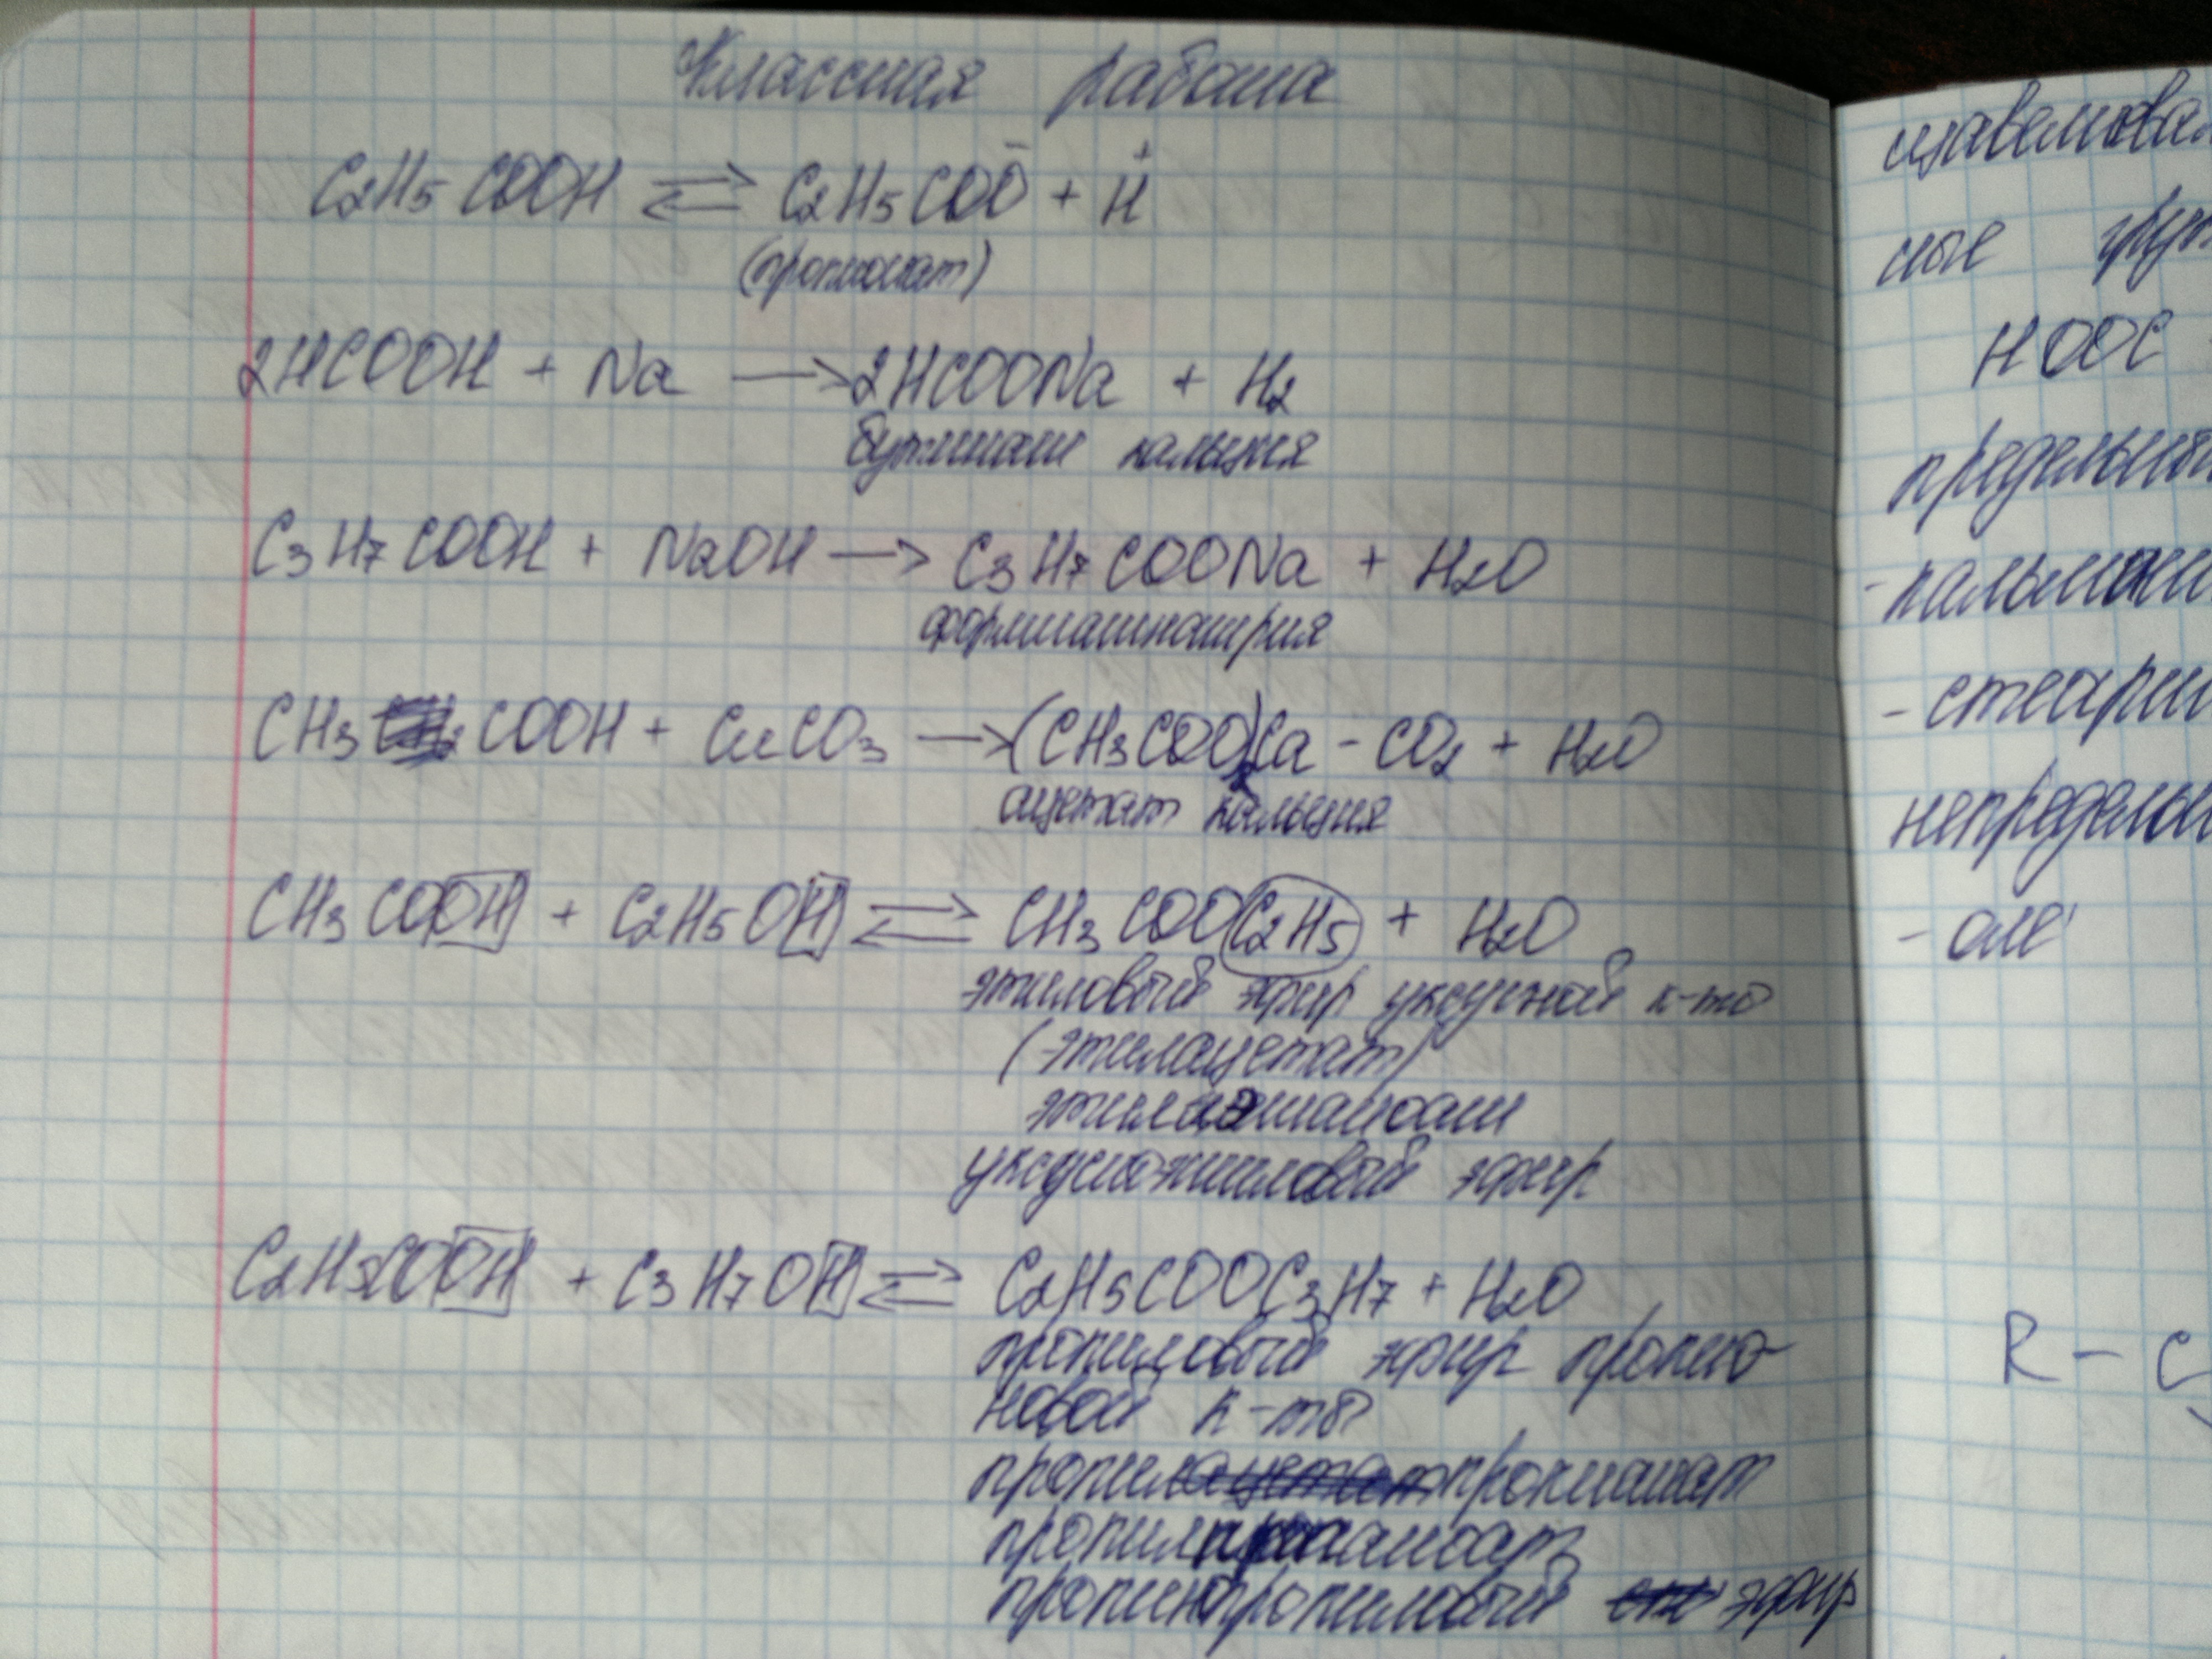 Классная работа
C2H5COOH ⇄ C2H5COO⁻ + H⁺
(пропионат)
2HCOOH + Na → 2HCOONa + H2
бутинат кальция
C3H7COOH + NaOH → C3H7COONa + H2O
формиатнатрия
CH3 COOH + CuCO3 → (CH3COO)2Ca - CO2 + H2O
ацетат кальция
CH3COOH + C2H5OH ⇄ CH3COOC2H5 + H2O
этиловый эфир уксусной к-то
(этилацетат)
этилэтаноат
уксусноэтиловый эфир
C2H5COOH + C3H7OH ⇄ C2H5COOC3H7 + H2O
пропиловый эфир пропио-
новой к-ты
пропилпропионат
пропилпропаноат
пропионпропиловый эфир
ные
HOOC
- стеарин
R - C